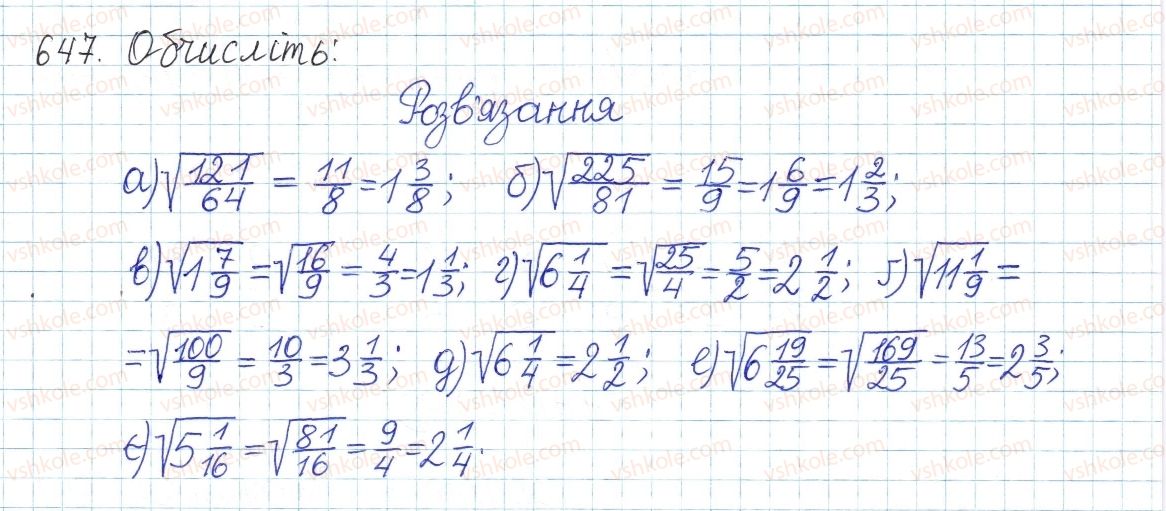 647. Обчисліть:
Розв'язання
а) √(121/64) = 11/8 = 1 3/8; б) √(225/81) = 15/9 = 1 6/9 = 1 2/3;
в) √(1 7/9) = √(16/9) = 4/3 = 1 1/3; г) √(6 1/4) = √(25/4) = 5/2 = 2 1/2; ґ) √(11 1/9) =
= √(100/9) = 10/3 = 3 1/3; д) √(6 1/4) = 2 1/2; е) √(6 19/25) = √(169/25) = 13/5 = 2 3/5;
є) √(5 1/16) = √(81/16) = 9/4 = 2 1/4.
vshkole.com